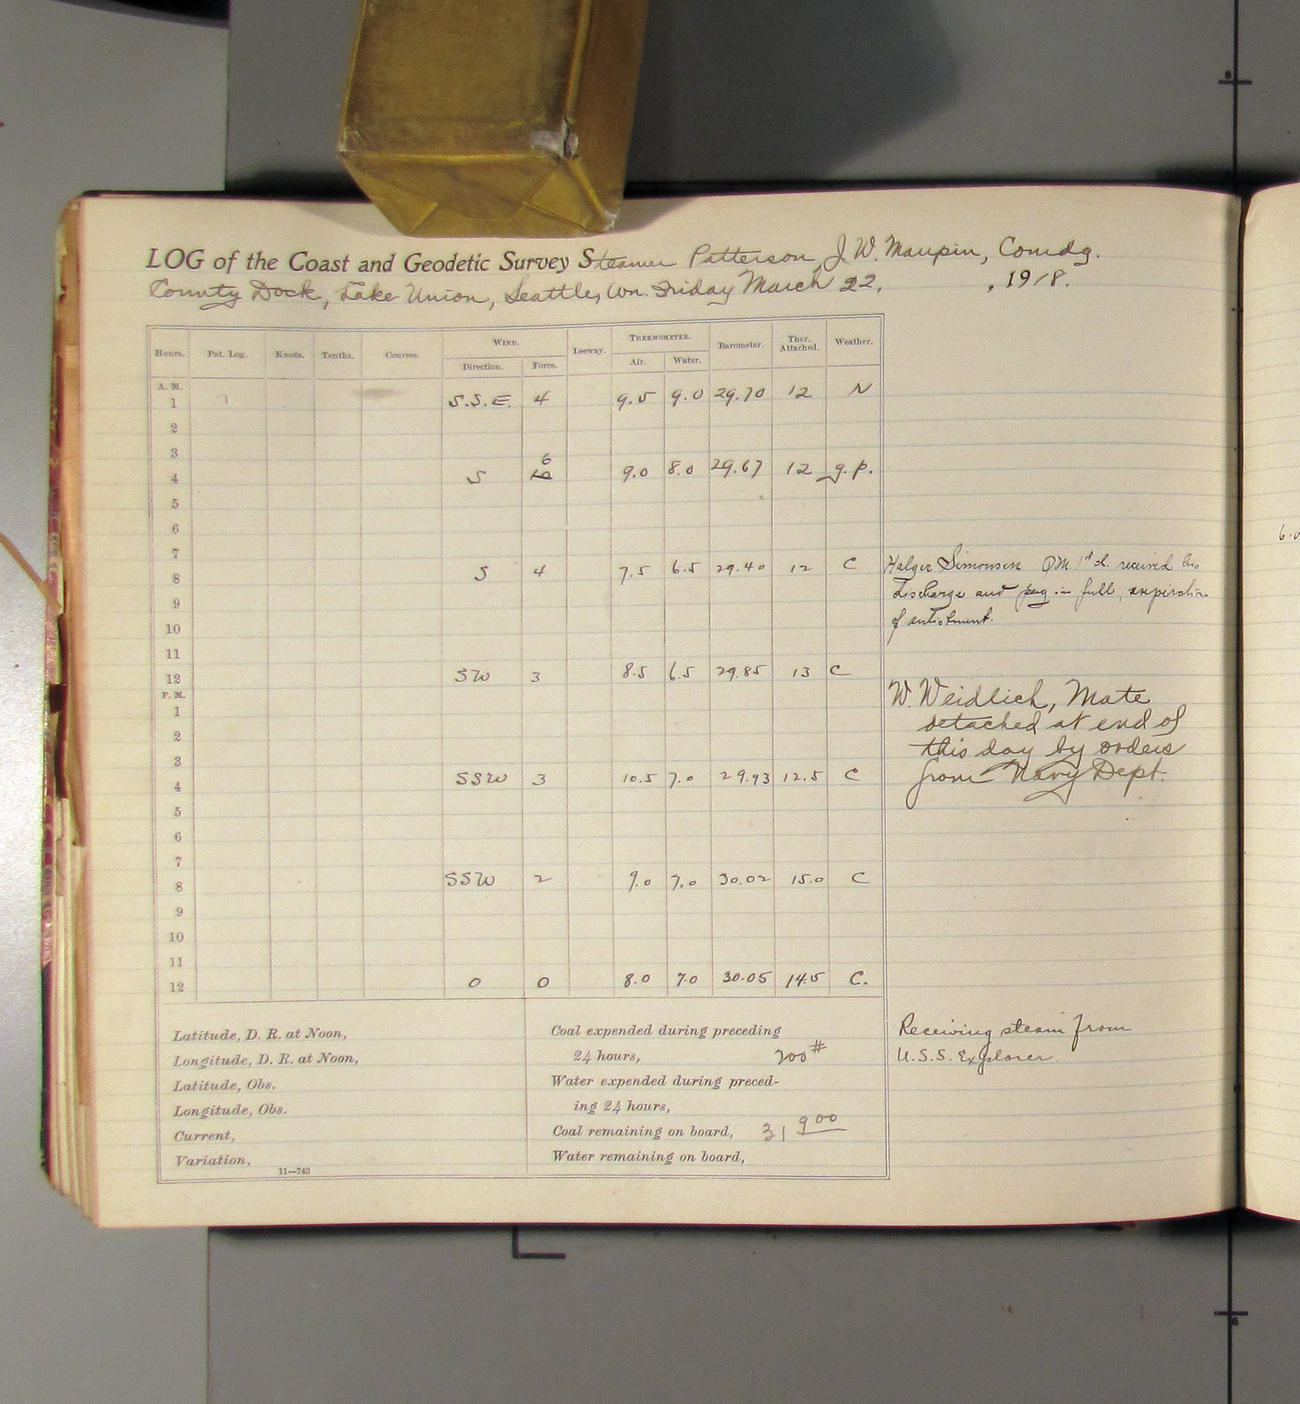 LOG of the Coast and Geodetic Survey Steamer Patterson, J. W. Maupin, Comdg.
County Dock, Lake Union, Seattle, Wn. Friday March 22, , 1918.
Hours. Pat. Log. Knots. Tenths. Courses. WIND. Leeway. THERMOMETER. Barometer. Ther. Attached. Weather.
Direction. Force. Air. Water.
A. M.
1 S.S.E. 4 9.5 9.0 29.70 12 N
2
3 6
4 S 9.0 8.0 29.67 12 g.p.
5
6
7
8 S 4 7.5 6.5 29.40 12 C
9
10
11
12 SW 3 8.5 6.5 29.85 13 C
P. M.
1
2
3
4 SSW 3 10.5 7.0 29.93 12.5 C
5
6
7
8 SSW 2 9.0 7.0 30.02 15.0 C
9
10
11
12 0 0 8.0 7.0 30.05 14.5 C.
Halger Simonsen QM 1st cl. received his
discharge and pay in full, expiration
of enlistment.
W. Weidlich, Mate
detached at end of
this day by orders
from Navy Dept.
Latitude, D. R. at Noon,
Longitude, D. R. at Noon,
Latitude, Obs.
Longitude, Obs.
Current,
Variation,
11—743
Coal expended during preceding
24 hours, 200#
Water expended during preced-
ing 24 hours,
Coal remaining on board, 31 900
Water remaining on board,
Receiving steam from
U.S.S. Explorer.